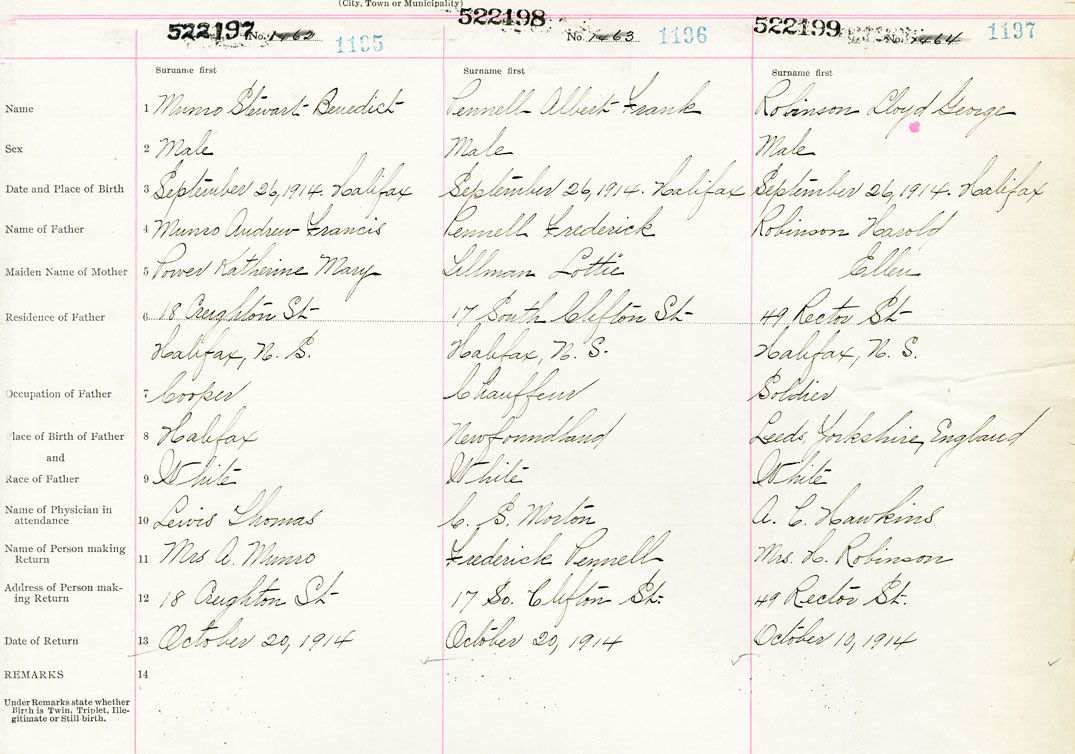 (City, Town or Municipality)
522197 No. 1462 1195 522198 No. 1463 1196 522199 No. 1464 1197
Surname first Surname first Surname first
Name 1 Munro Stewart Benedict Pennell Albert Frank Robinson Lloyd George
Sex 2 Male Male Male
Date and Place of Birth 3 September 26, 1914. Halifax September 26, 1914. Halifax September 26, 1914. Halifax
Name of Father 4 Munro Andrew Francis Pennell Frederick Robinson Harold
Maiden Name of Mother 5 Power Katherine Mary Lillman Lottie Ellen
Residence of Father 6 18 Creighton St 17 South Clifton St 49 Rector St
Halifax, N. S. Halifax, N. S. Halifax, N. S.
Occupation of Father 7 Cooper Chauffeur Soldier
Place of Birth of Father 8 Halifax Newfoundland Leeds, Yorkshire, England
and
Race of Father 9 White White White
Name of Physician in
attendance 10 Lewis Thomas C. S. Morton A. C. Hawkins
Name of Person making
Return 11 Mrs A. Munro Frederick Pennell Mrs. H. Robinson
Address of Person mak-
ing Return 12 18 Creighton St 17 So. Clifton St. 49 Rector St.
Date of Return 13 October 20, 1914 October 20, 1914 October 10, 1914
REMARKS 14
Under Remarks state whether
Birth is Twin, Triplet, Ille-
gitimate or Still-birth.